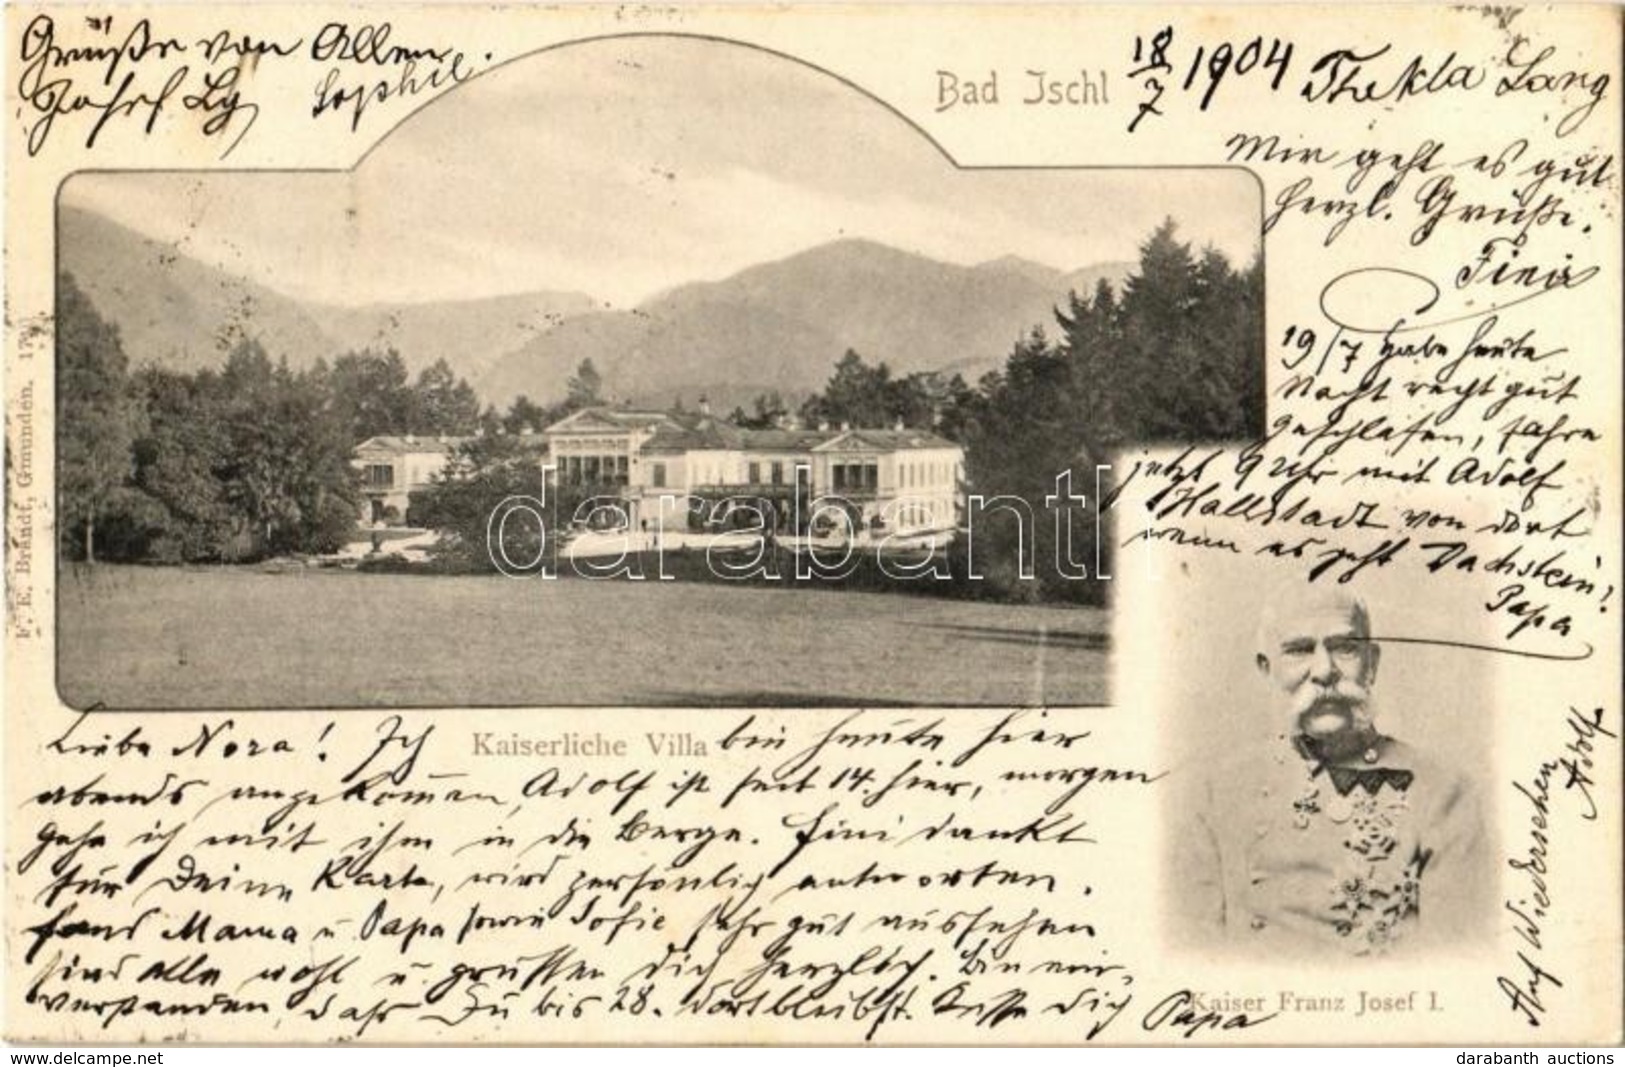 Grüße von Allen.
Josef Lg Sophie
Bad Ischl
18/7 1904 Thekla Lang
Mir geht es gut
herzl. Grüße.
Fini
19/7 habe heute
Nacht recht gut
geschlafen, fahre
jetzt 9 Uhr mit Adolf
Hallstadt von dort
wenn es geht Dachstein!
Papa
F. E. Brandt, Gmunden.
Liebe Nora! Ich Kaiserliche Villa bin heute hier
abends angekommen, Adolf ist seit 14. hier, morgen
gehe ich mit ihm in die Berge. Fini dankt
für Deine Karte, wird persönlich antworten.
fand Mama u Papa sowie Sofie sehr gut aussehen
sind alle wohl u. grüssen Dich herzlich. Bin ein-
verstanden, dass Du bis 28. dort bleibst. Küsse Dich Papa
Kaiser Franz Josef I.
Auf Wiedersehen
Adolf
darabanth
darabanth auctions